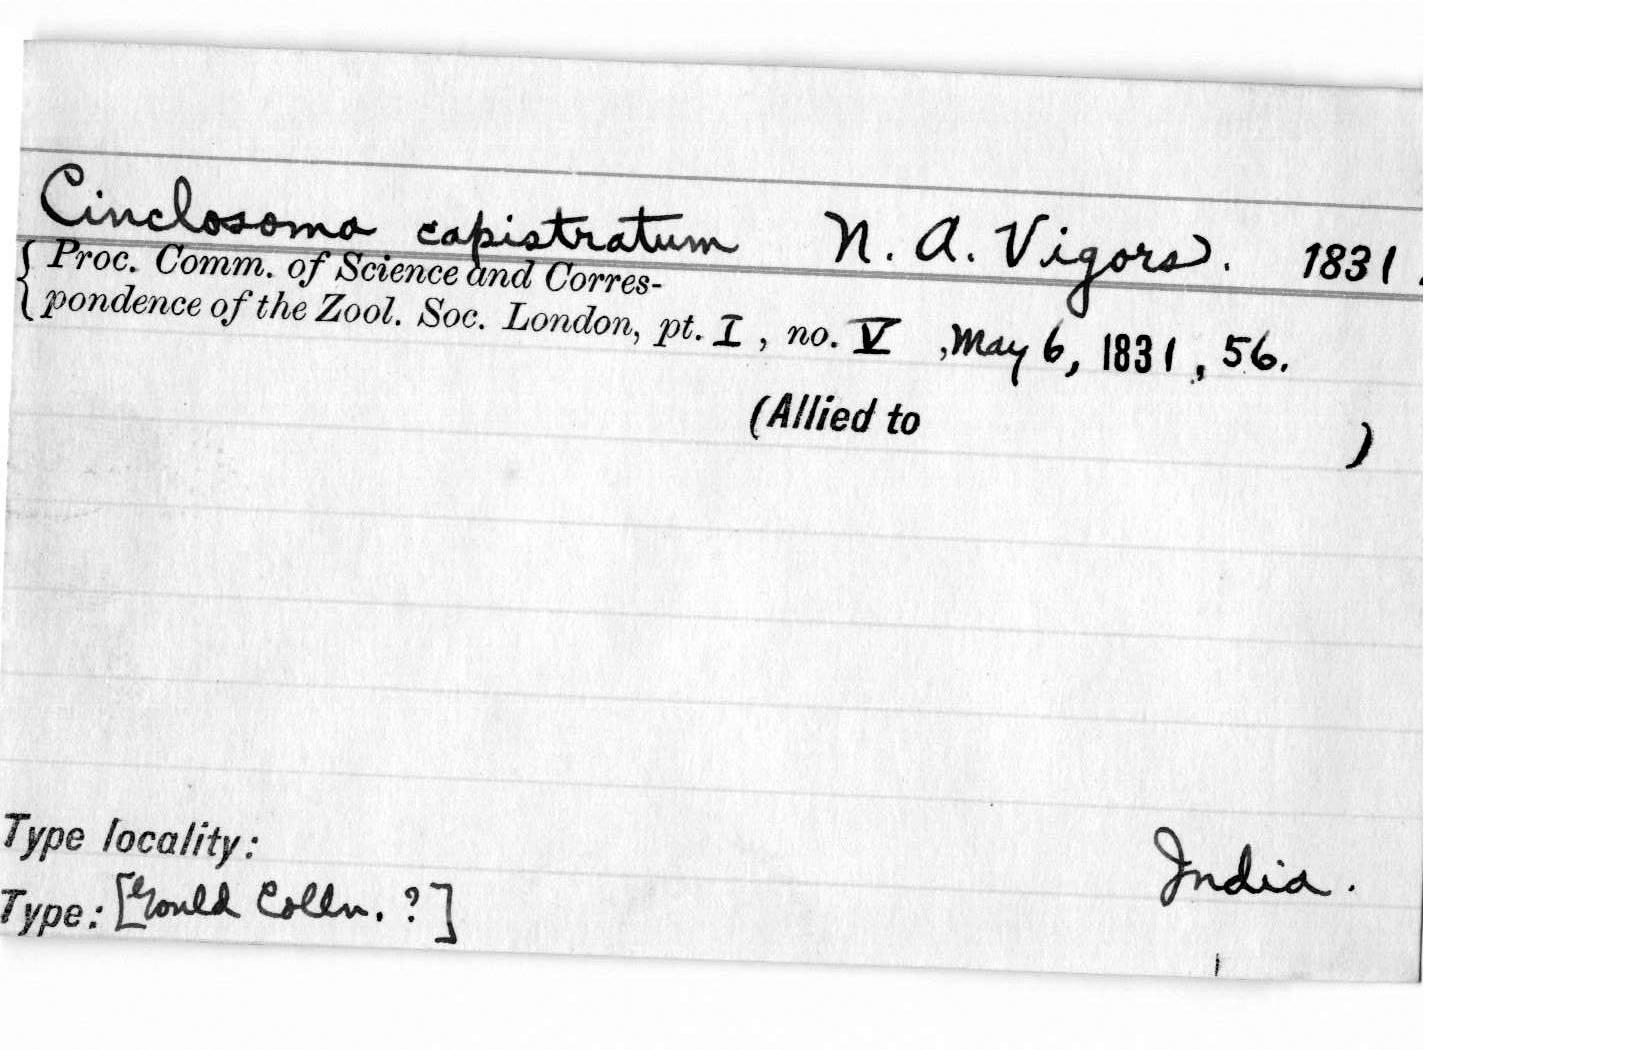 Cinclosoma capistratum N. A. Vigors. 1831.
{ Proc. Comm. of Science and Corres-
pondence of the Zool. Soc. London, pt. I, no. V, May 6, 1831, 56.
(Allied to )
Type locality: India.
Type: [Gould Colln. ?]